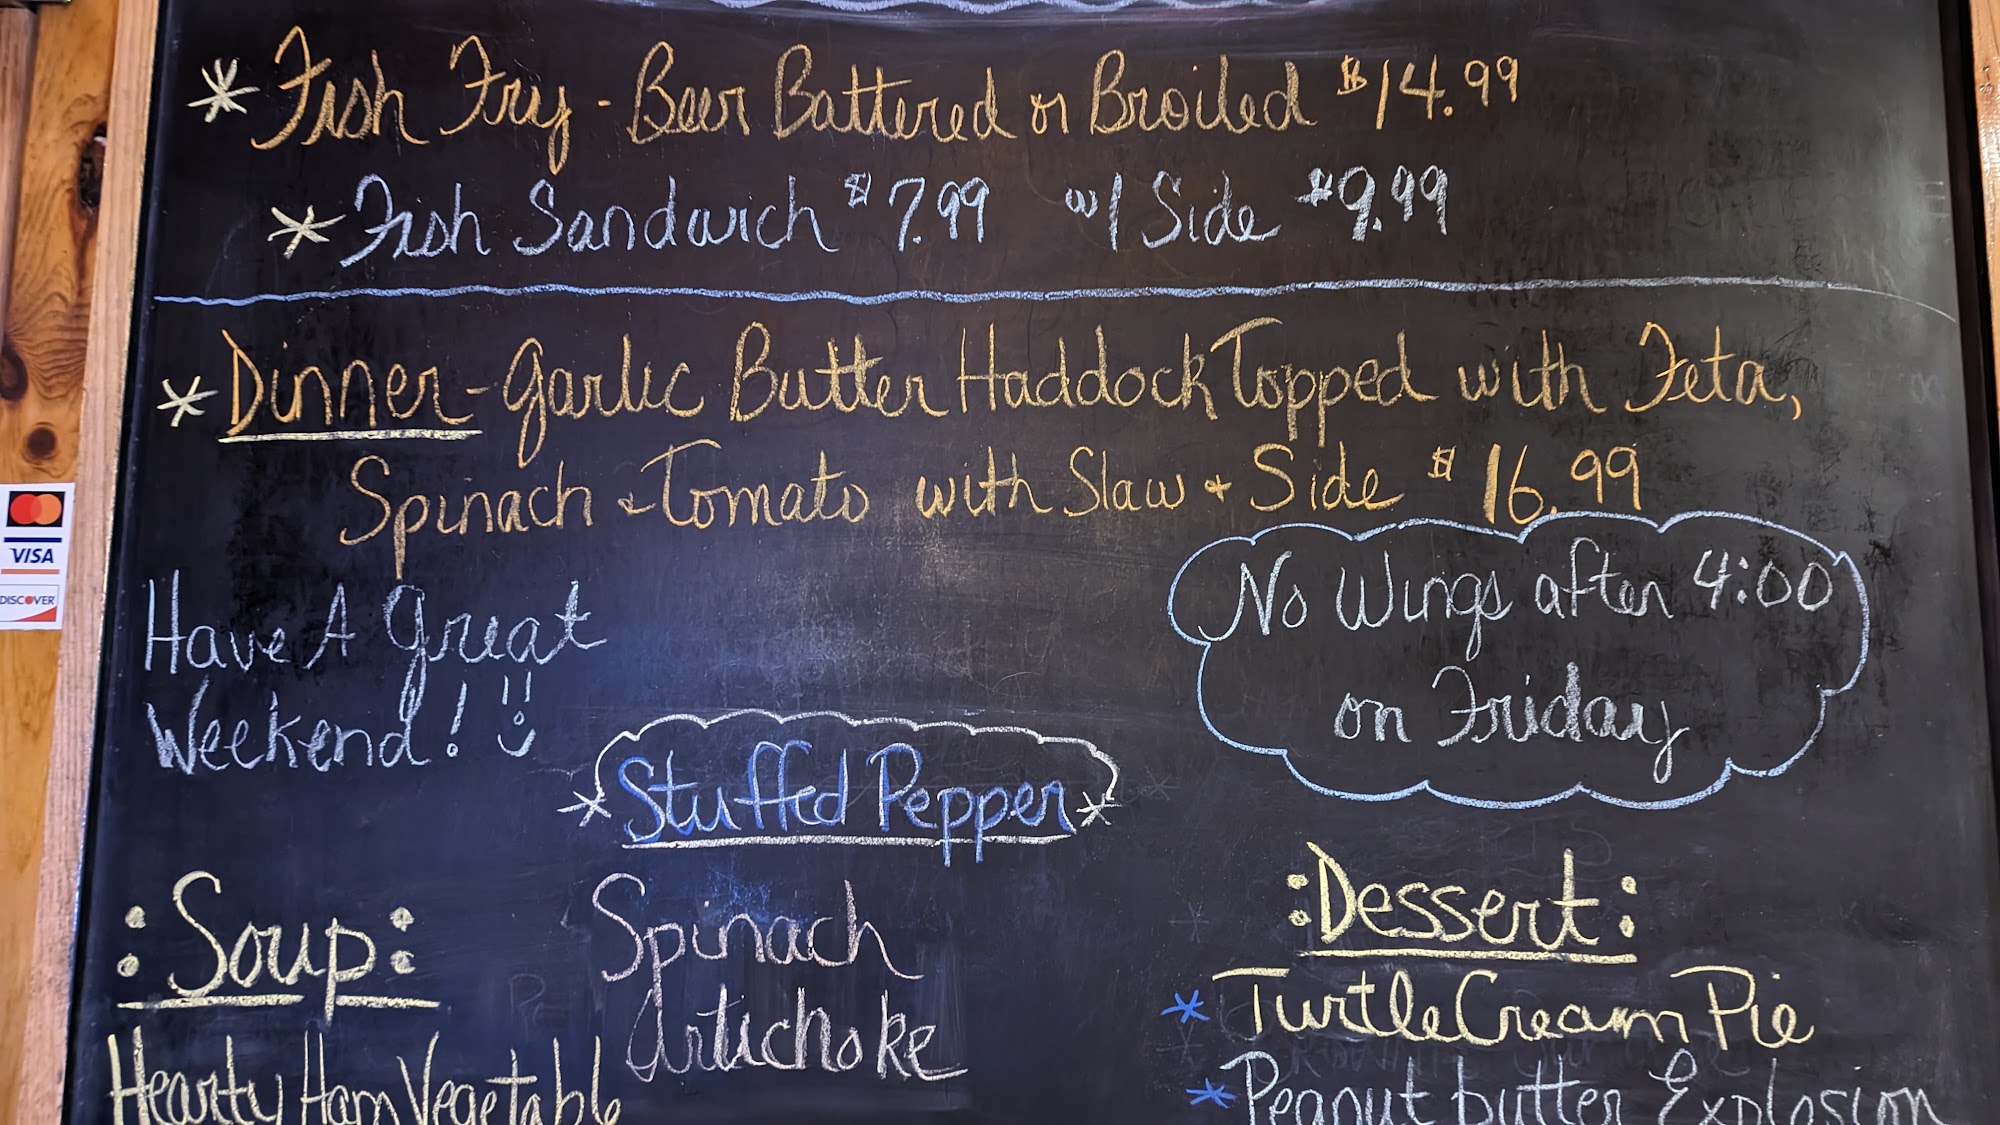 * Fish Fry - Beer Battered or Broiled $14.99
* Fish Sandwich $7.99 w/ Side $9.99
* Dinner - Garlic Butter Haddock Topped with Feta,
Spinach & Tomato with Slaw & Side $16.99
Have A Great
Weekend!
No Wings after 4:00
on Friday
* Stuffed Pepper *
:Soup:
Hearty Ham Vegetable
Spinach
Artichoke
:Dessert:
* Turtle Cream Pie
* Peanut butter Explosion
VISA
DISCOVER